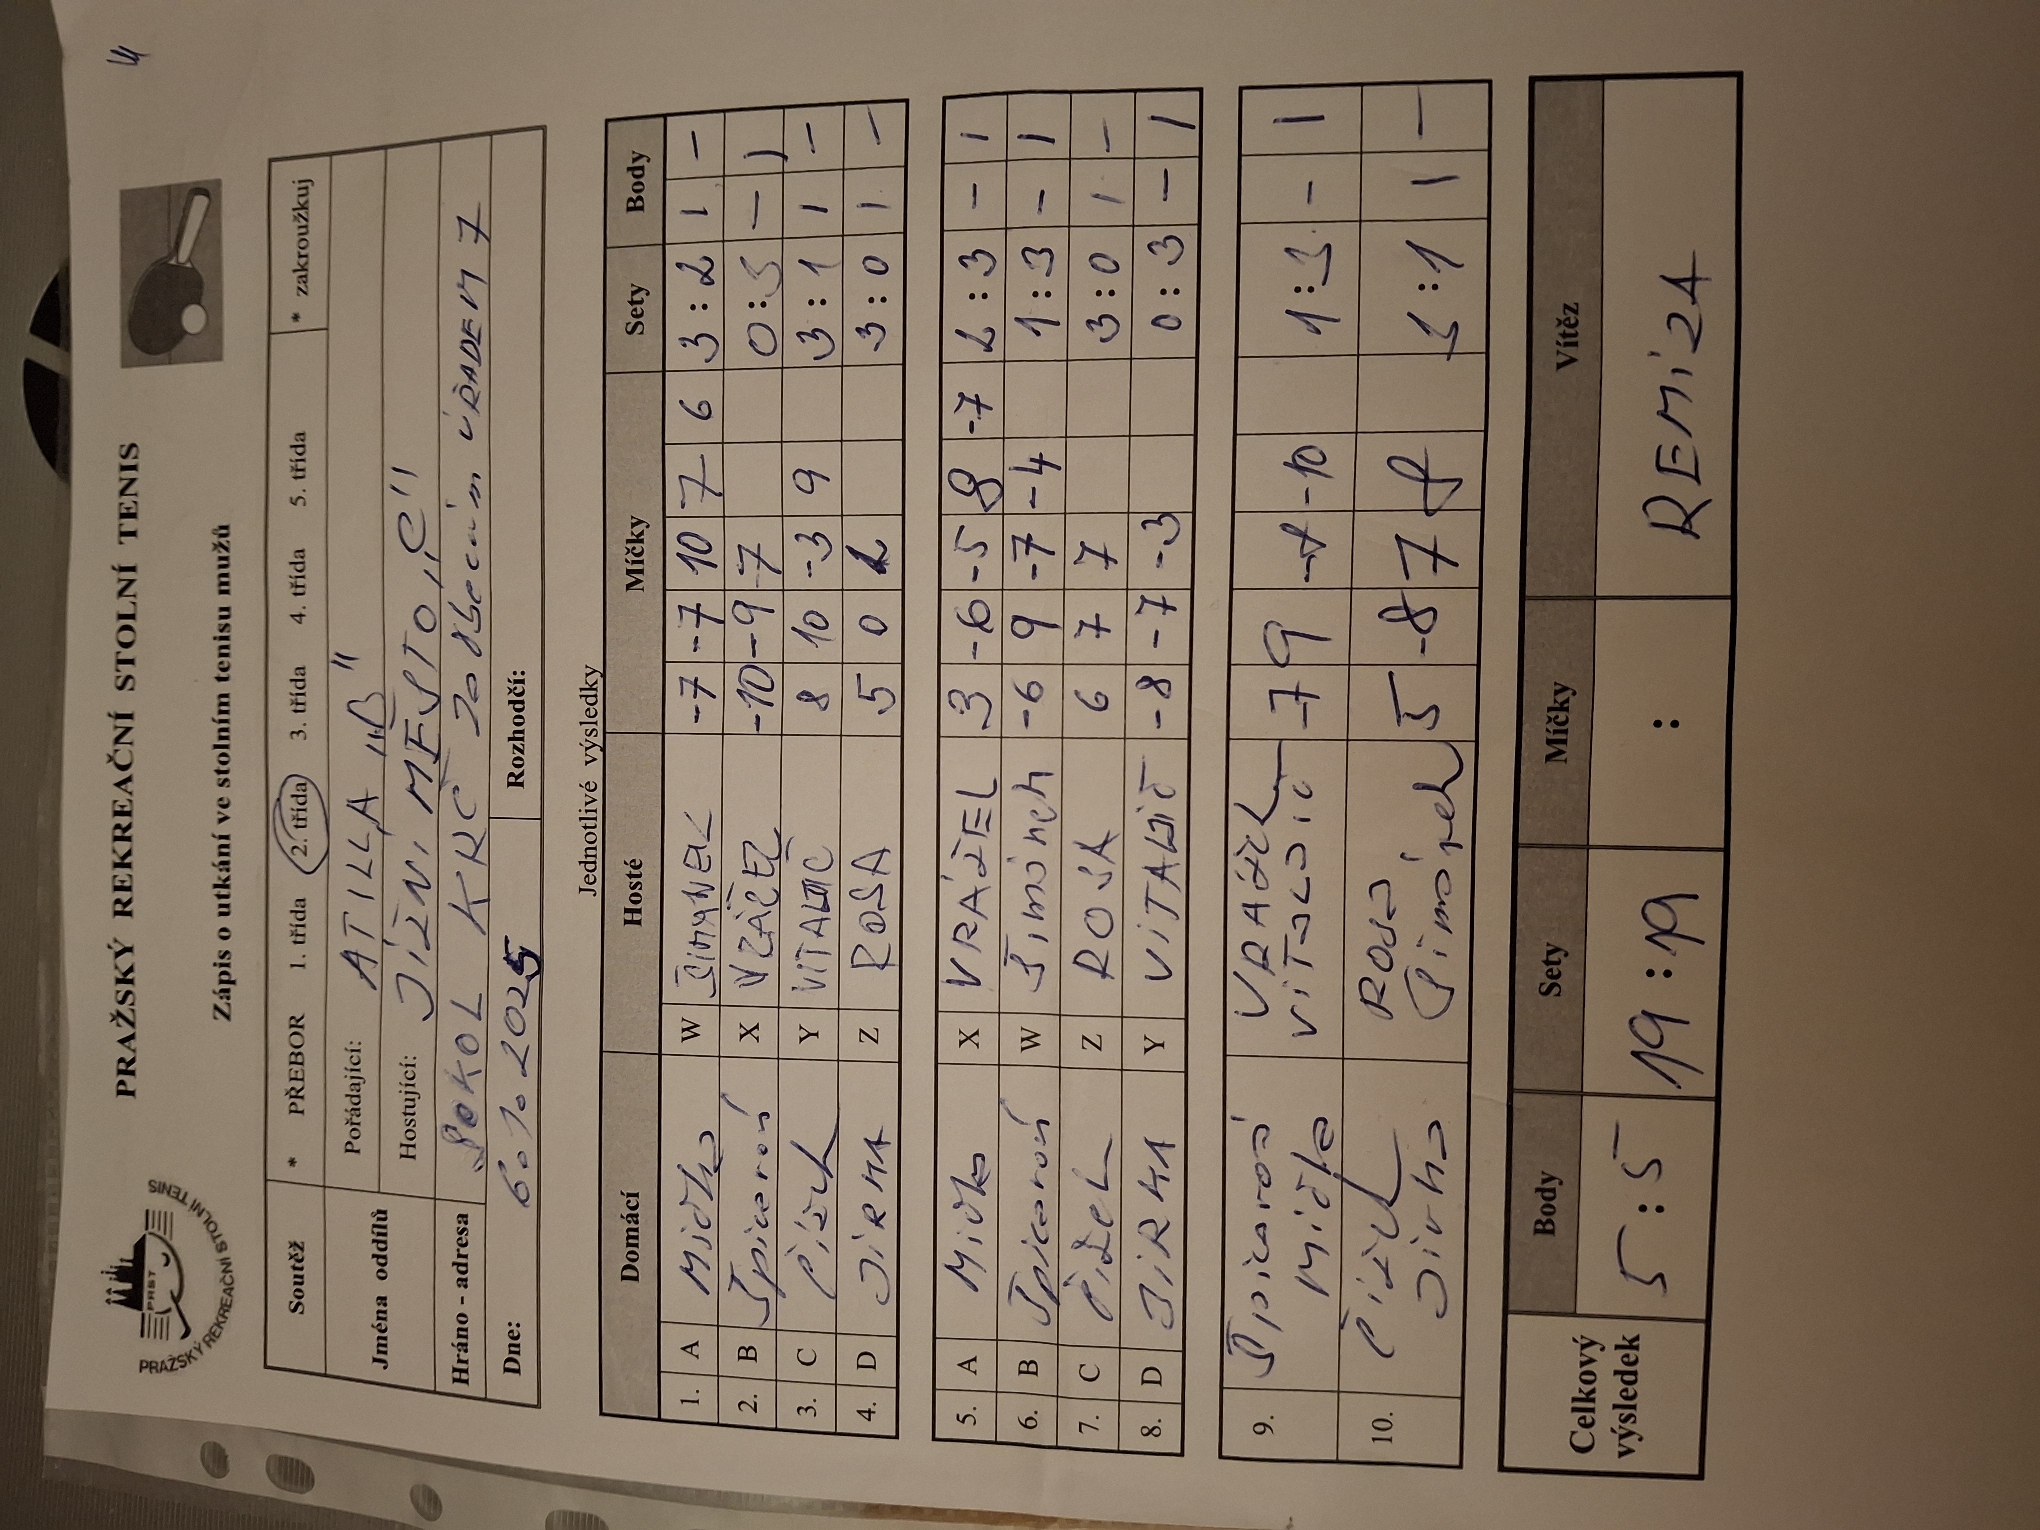 PRAŽSKÝ REKREAČNÍ STOLNÍ TENIS
PRST
PRAŽSKÝ REKREAČNÍ STOLNÍ TENIS
Zápis o utkání ve stolním tenisu mužů
Soutěž * PŘEBOR 1. třída 2. třída 3. třída 4. třída 5. třída * zakroužkuj
Jména oddílů Pořádající: ATILLA „B"
Hostující: JIŽNÍ MĚSTO „C"
Hráno - adresa SOKOL KRČ ZA OBECNÍM ÚŘADEM 7
Dne: 6.10.2025 Rozhodčí:
Jednotlivé výsledky
Domácí Hosté Míčky Sety Body
1. A W -7 -7 10 7 6 3 : 2 1 -
2. B X -10 -9 -7 0 : 3 - 1
3. C Y VITALIČ 8 10 -3 9 3 : 1 1 -
4. D JIRKA Z ROSA 5 0 2 3 : 0 1 -
5. A X VRÁŽEL 3 -6 -5 8 -7 2 : 3 - 1
6. B W -6 9 -7 -4 1 : 3 - 1
7. C Z ROSA 6 7 7 3 : 0 1 -
8. D JIRKA Y VITALIČ -8 -7 -3 0 : 3 - 1
9. -7 9 -8 -10 1 : 3 - 1
10. ROSA 5 -8 7 8 3 : 1 1 -
Jirka
Celkový výsledek Body Sety Míčky Vítěz
5 : 5 19 : 19 : REMÍZA